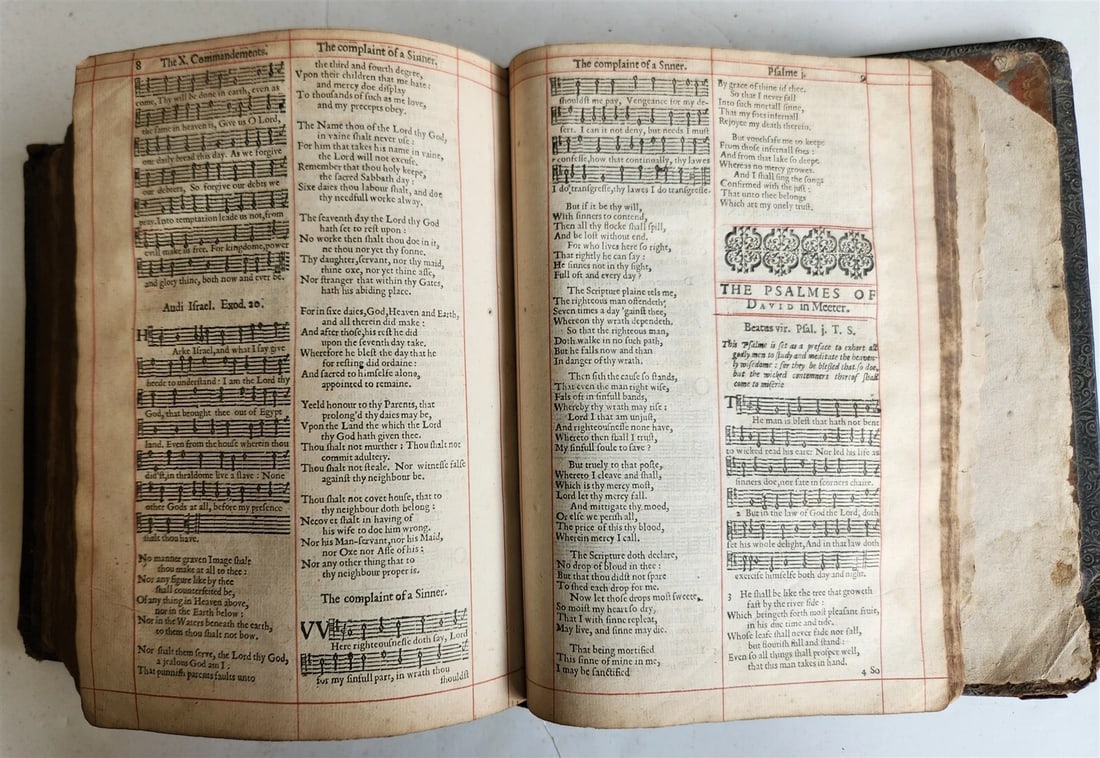 8 The X. Commandements.
come, Thy will be done in earth, even as
the same in heaven is, Give us O Lord,
our daily bread this day. As we forgive
our debters, So forgive our debts we
pray. Into temptation leade us not, from
evill make us free. For kingdome, power
and glory thine, both now and ever be.
Audi Israel. Exod. 20.
HArke Israel, and what I say give
heede to understand: I am the Lord thy
God, that brought thee out of Egypt
land. Even from the house wherein thou
didſt, in thraldome live a slave: None
other Gods at all, before my presence
ſhalt thou have.
No manner graven Image ſhalt
thou make at all to thee:
Nor any figure like by thee
ſhall counterfeited be,
Of any thing in Heaven above,
nor in the Earth below:
Nor in the Waters beneath the earth,
to them thou ſhalt not bow.
Nor ſhalt them ſerve, the Lord thy God,
a jealous God am I:
That puniſh parents faults unto
The complaint of a Sinner.
the third and fourth degree,
Vpon their children that me hate:
and mercy doe diſplay
To thouſands of ſuch as me love,
and my precepts obey.
The Name thou of the Lord thy God,
in vaine ſhalt never uſe:
For him that takes his name in vaine,
the Lord will not excuſe.
Remember that thou holy keepe,
the ſacred Sabbath day:
Sixe daies thou labour ſhalt, and doe
thy needfull worke alway.
The ſeaventh day the Lord thy God
hath ſet to reſt upon:
No worke then ſhalt thou doe in it,
ne thou nor yet thy ſonne.
Thy daughter, ſervant, nor thy maid,
thine oxe, nor yet thine aſſe,
Nor ſtranger that within thy Gates,
hath his abiding place.
For in sixe daies, God, Heaven and Earth,
and all therein did make:
And after thoſe, his reſt he did
upon the ſeventh day take.
Wherefore he bleſt the day that he
for reſting did ordaine:
And ſacred to himſelfe alone,
appointed to remaine.
Yeeld honour to thy Parents, that
prolong'd thy daies may be,
Vpon the Land the which the Lord
thy God hath given thee.
Thou ſhalt not murther: Thou ſhalt not
commit adultery.
Thou ſhalt not ſteale. Nor witneſſe falſe
againſt thy neighbour be.
Thou ſhalt not covet houſe, that to
thy neighbour doth belong:
Ne covet ſhalt in having of
his wife to doe him wrong.
Nor his Man-ſervant, nor his Maid,
nor Oxe nor Aſſe of his:
Nor any other thing that to
thy neighbour proper is.
The complaint of a Sinner.
VVHere righteouſneſſe doth ſay, Lord
for my ſinfull part, in wrath thou
ſhouldſt
The complaint of a Snner.
ſhouldſt me pay, Vengeance for my de-
ſert. I can it not deny, but needs I muſt
confeſſe, how that continually, thy lawes
I do tranſgreſſe, thy lawes I do tranſgreſſe.
But if it be thy will,
With ſinners to contend,
Then all thy flocke ſhall ſpill,
And be loſt without end.
For who lives here ſo right,
That rightly he can ſay:
He ſinnes not in thy ſight,
Full oft and every day?
The Scripture plaine tels me,
The righteous man offendeth
Seven times a day 'gainſt thee,
Whereon thy wrath dependeth.
So that the righteous man,
Doth walke in no ſuch path,
But he falls now and than
In danger of thy wrath.
Then ſith the cauſe ſo ſtands,
That even the man right wiſe,
Fals oft in ſinfull bands,
Whereby thy wrath may riſe:
Lord I that am unjuſt,
And righteouſneſſe none have,
Whereto then ſhall I truſt,
My ſinfull ſoule to ſave?
But truely to that poſte,
Whereto I cleave and ſhall,
Which is thy mercy moſt,
Lord let thy mercy fall.
And mittigate thy mood,
Or elſe we periſh all,
The price of this thy blood,
Wherein mercy I call.
The Scripture doth declare,
No drop of bloud in thee:
But that thou didſt not ſpare
To ſhed each drop for me.
Now let thoſe drops moſt ſweete,
So moiſt my heart ſo dry,
That I with ſinne repleat,
May live, and ſinne may die.
That being mortified
This ſinne of mine in me,
I may be ſanctified
Pſalme j. 9
By grace of thine in thee.
So that I never fall
Into ſuch mortall ſinne,
That my foes infernall
Rejoyce my death therein.
But vouchſafe me to keepe
From thoſe infernall foes:
And from that lake ſo deepe
Whereas no mercy growes.
And I ſhall ſing the ſongs
Confirmed with the juſt:
That unto thee belongs
Which art my onely truſt.
THE PSALMES OF
DAVID in Meeter.
Beatus vir. Pſal. j. T. S.
This Pſalme is ſet as a preface to exhort all
godly men to ſtudy and meditate the heaven-
ly wiſedome: for they be bleſſed that ſo doe,
but the wicked contemners thereof ſhall
come to miſerie
THe man is bleſt that hath not bent
to wicked read his eare: Nor led his life as
ſinners doe, nor ſate in ſcorners chaire.
2 But in the law of God the Lord, doth
ſet his whole delight, And in that law doth
exerciſe himſelfe both day and night.
3 He ſhall be like the tree that groweth
faſt by the river ſide:
Which bringeth forth moſt pleaſant fruit,
in his due time and tide.
Whoſe leafe ſhall never fade nor fall,
but flouriſh ſtill and ſtand:
Even ſo all things ſhall proſper well,
that this man takes in hand.
4 So